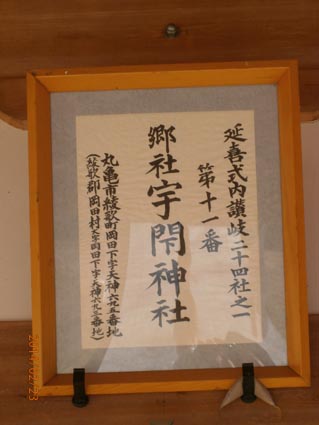 延喜式内讃岐二十四社之一
第十一番
郷社宇閇神社
丸亀市綾歌町岡田下字天神六九五番地
(綾歌郡岡田村大字岡田下字天神六九三番地)